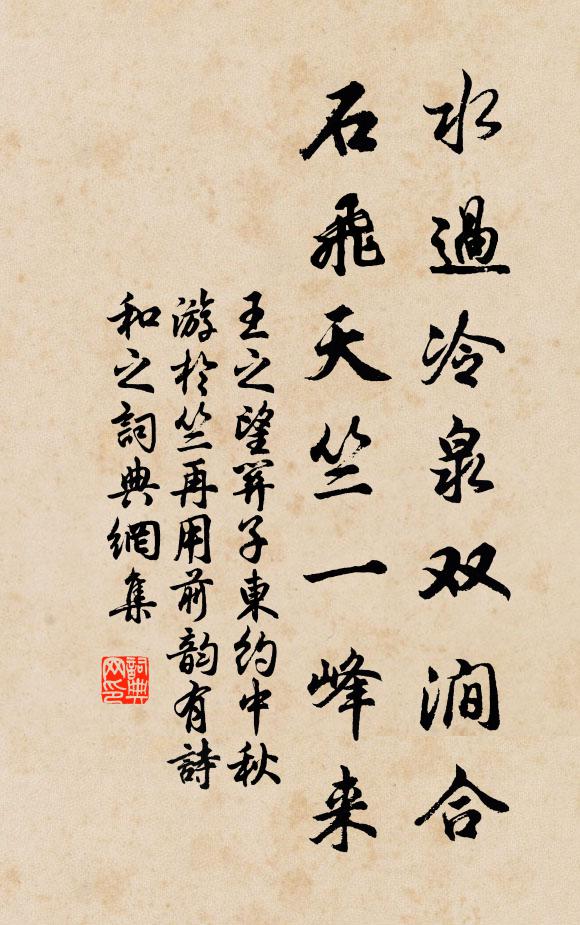 水過冷泉双澗合
石飛天竺一峰来
王之望羿子東約中秋
游於竺再用前韵有詩
和之詞典網集
詞典
网印